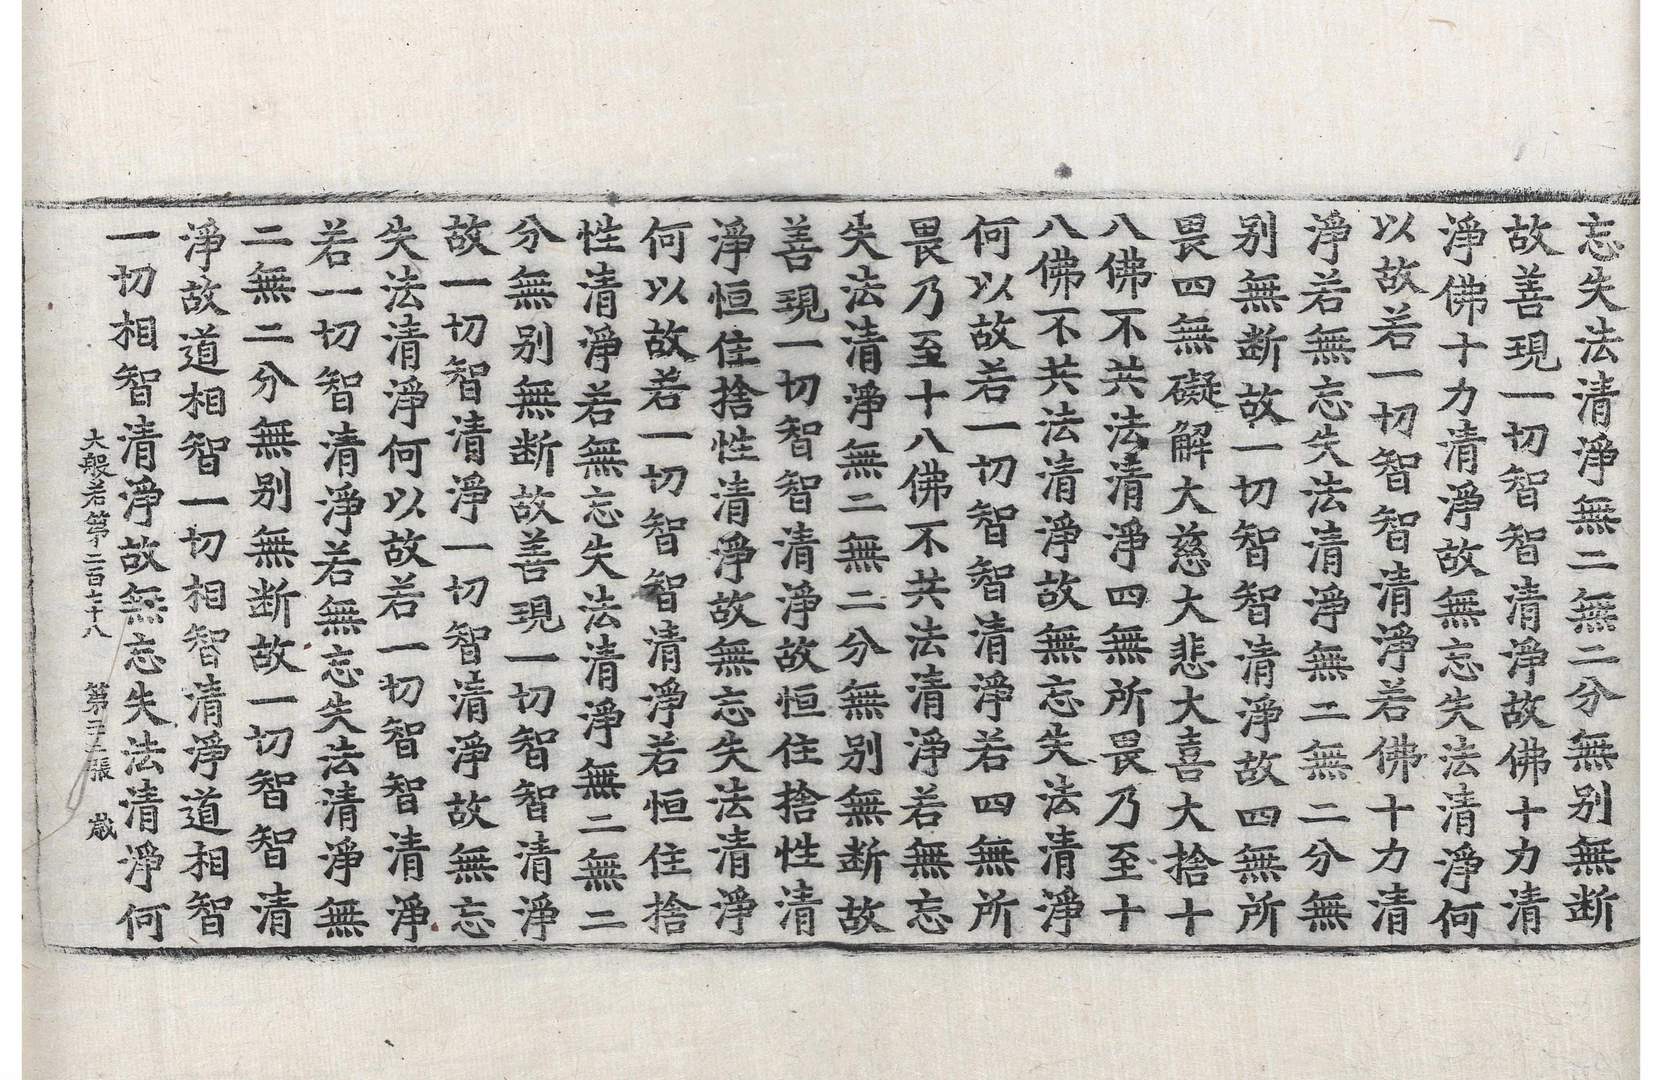 忘失法清淨無二無二分無別無断
故善現一切智智清淨故佛十力清
淨佛十力清淨故無忘失法清淨何
以故若一切智智清淨若佛十力清
淨若無忘失法清淨無二無二分無
別無断故一切智智清淨故四無所
畏四無礙解大慈大悲大喜大捨十
八佛不共法清淨四無所畏乃至十
八佛不共法清淨故無忘失法清淨
何以故若一切智智清淨若四無所
畏乃至十八佛不共法清淨若無忘
失法清淨無二無二分無別無断故
善現一切智智清淨故恒住捨性清
淨恒住捨性清淨故無忘失法清淨
何以故若一切智智清淨若恒住捨
性清淨若無忘失法清淨無二無二
分無別無断故善現一切智智清淨
故一切智清淨一切智清淨故無忘
失法清淨何以故若一切智智清淨
若一切智清淨若無忘失法清淨無
二無二分無別無断故一切智智清
淨故道相智一切相智清淨道相智
一切相智清淨故無忘失法清淨何
大般若第二百七十八 第三張 嵗